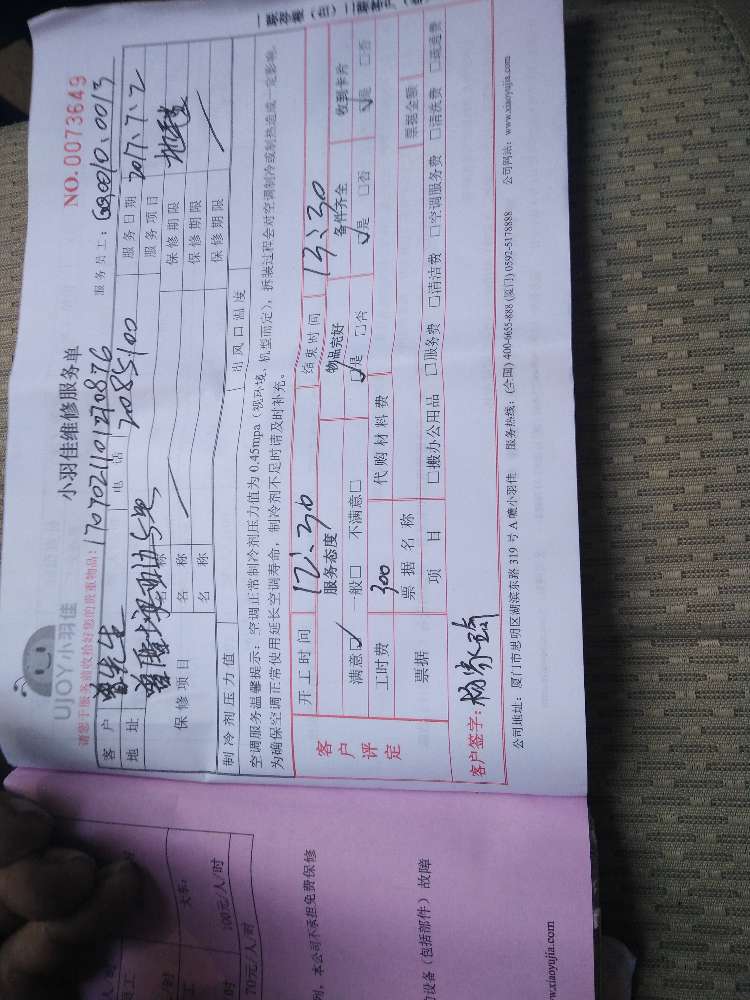 一联存根（白）二联客户（
小羽佳维修服务单
NO.0073649
UJOY小羽佳
请您于服务前收拾好您的贵重物品：
1707021101270876
服务员工：
客户
先生
电话
2085100
服务日期
2017.7.2
地址
服务项目
地毯
保修项目
名称
保修期限
名称
保修期限
名称
保修期限
制冷剂压力值
出风口温度
空调服务温馨提示：空调正常制冷剂压力值为0.45mpa（视环境、机型而定），拆装过程会对空调制冷或制热造成一定影响。
为确保空调正常使用延长空调寿命，制冷剂不足时请及时补充。
客户评定
开工时间
12：30
结束时间
13：30
服务态度
物品完好
备件齐全
收到卡片
满意□ 一般□ 不满意□
□是 □否
□是 □否
□是 □否
工时费
300
代购材料费
票据
票据名称
票据金额
项目
□搬办公用品 □服务费 □清洁费 □空调服务费 □清洗费 □疏通费
客户签字：
公司地址：厦门市思明区湖滨东路319号A幢小羽佳 服务热线：(全国) 400-6655-888 (厦门) 0592-5178888 公司网站：www.xiaoyujia.com
100元/人/时
70元/人/时
本公司不承担免费保修
设备（包括部件）故障
w.xiaoyujia.com